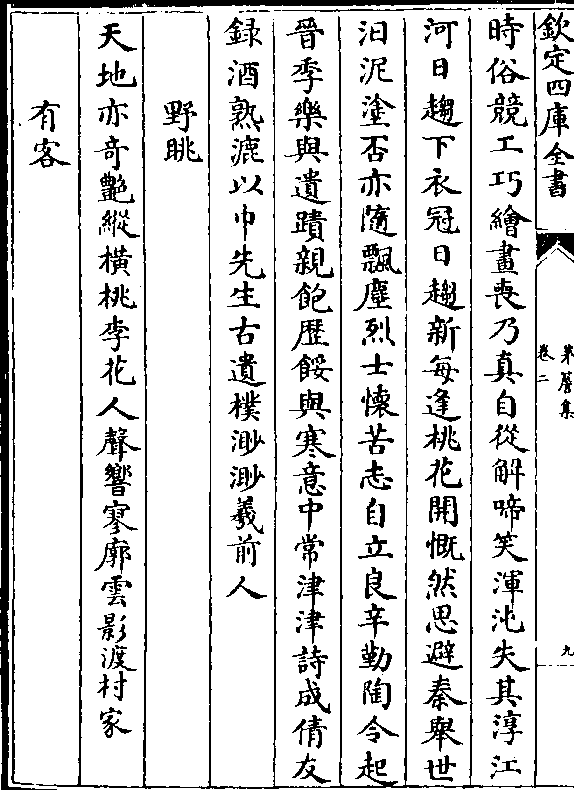 欽定四庫全書
茅簷集
卷二
九
時俗競工巧繪畫喪乃真自從解啼笑渾沌失其淳江
河日趨下衣冠日趨新每逢桃花開慨然思避秦舉世
汩泥塗否亦隨飄塵烈士懷苦志自立良辛勤陶令起
晉季樂與遺蹟親飽歴餒與寒意中常津津詩成倩友
録酒熟漉以巾先生古遺樸渺渺羲前人
野眺
天地亦奇艷縱横桃李花人聲響寥廓雲影渡村家
有客